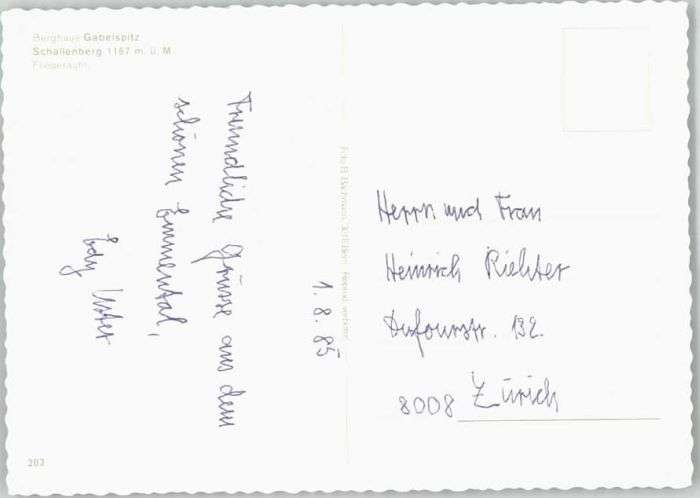 Berghaus Gabelspitz
Schallenberg 1167 m. ü. M.
Fliegeraufn.
1. 8. 85
Freundliche Grüsse aus dem
schönen Emmental,
Edy
Herrn und Frau
Heinrich Richter
Dufourstr. 132.
8008 Zürich
203